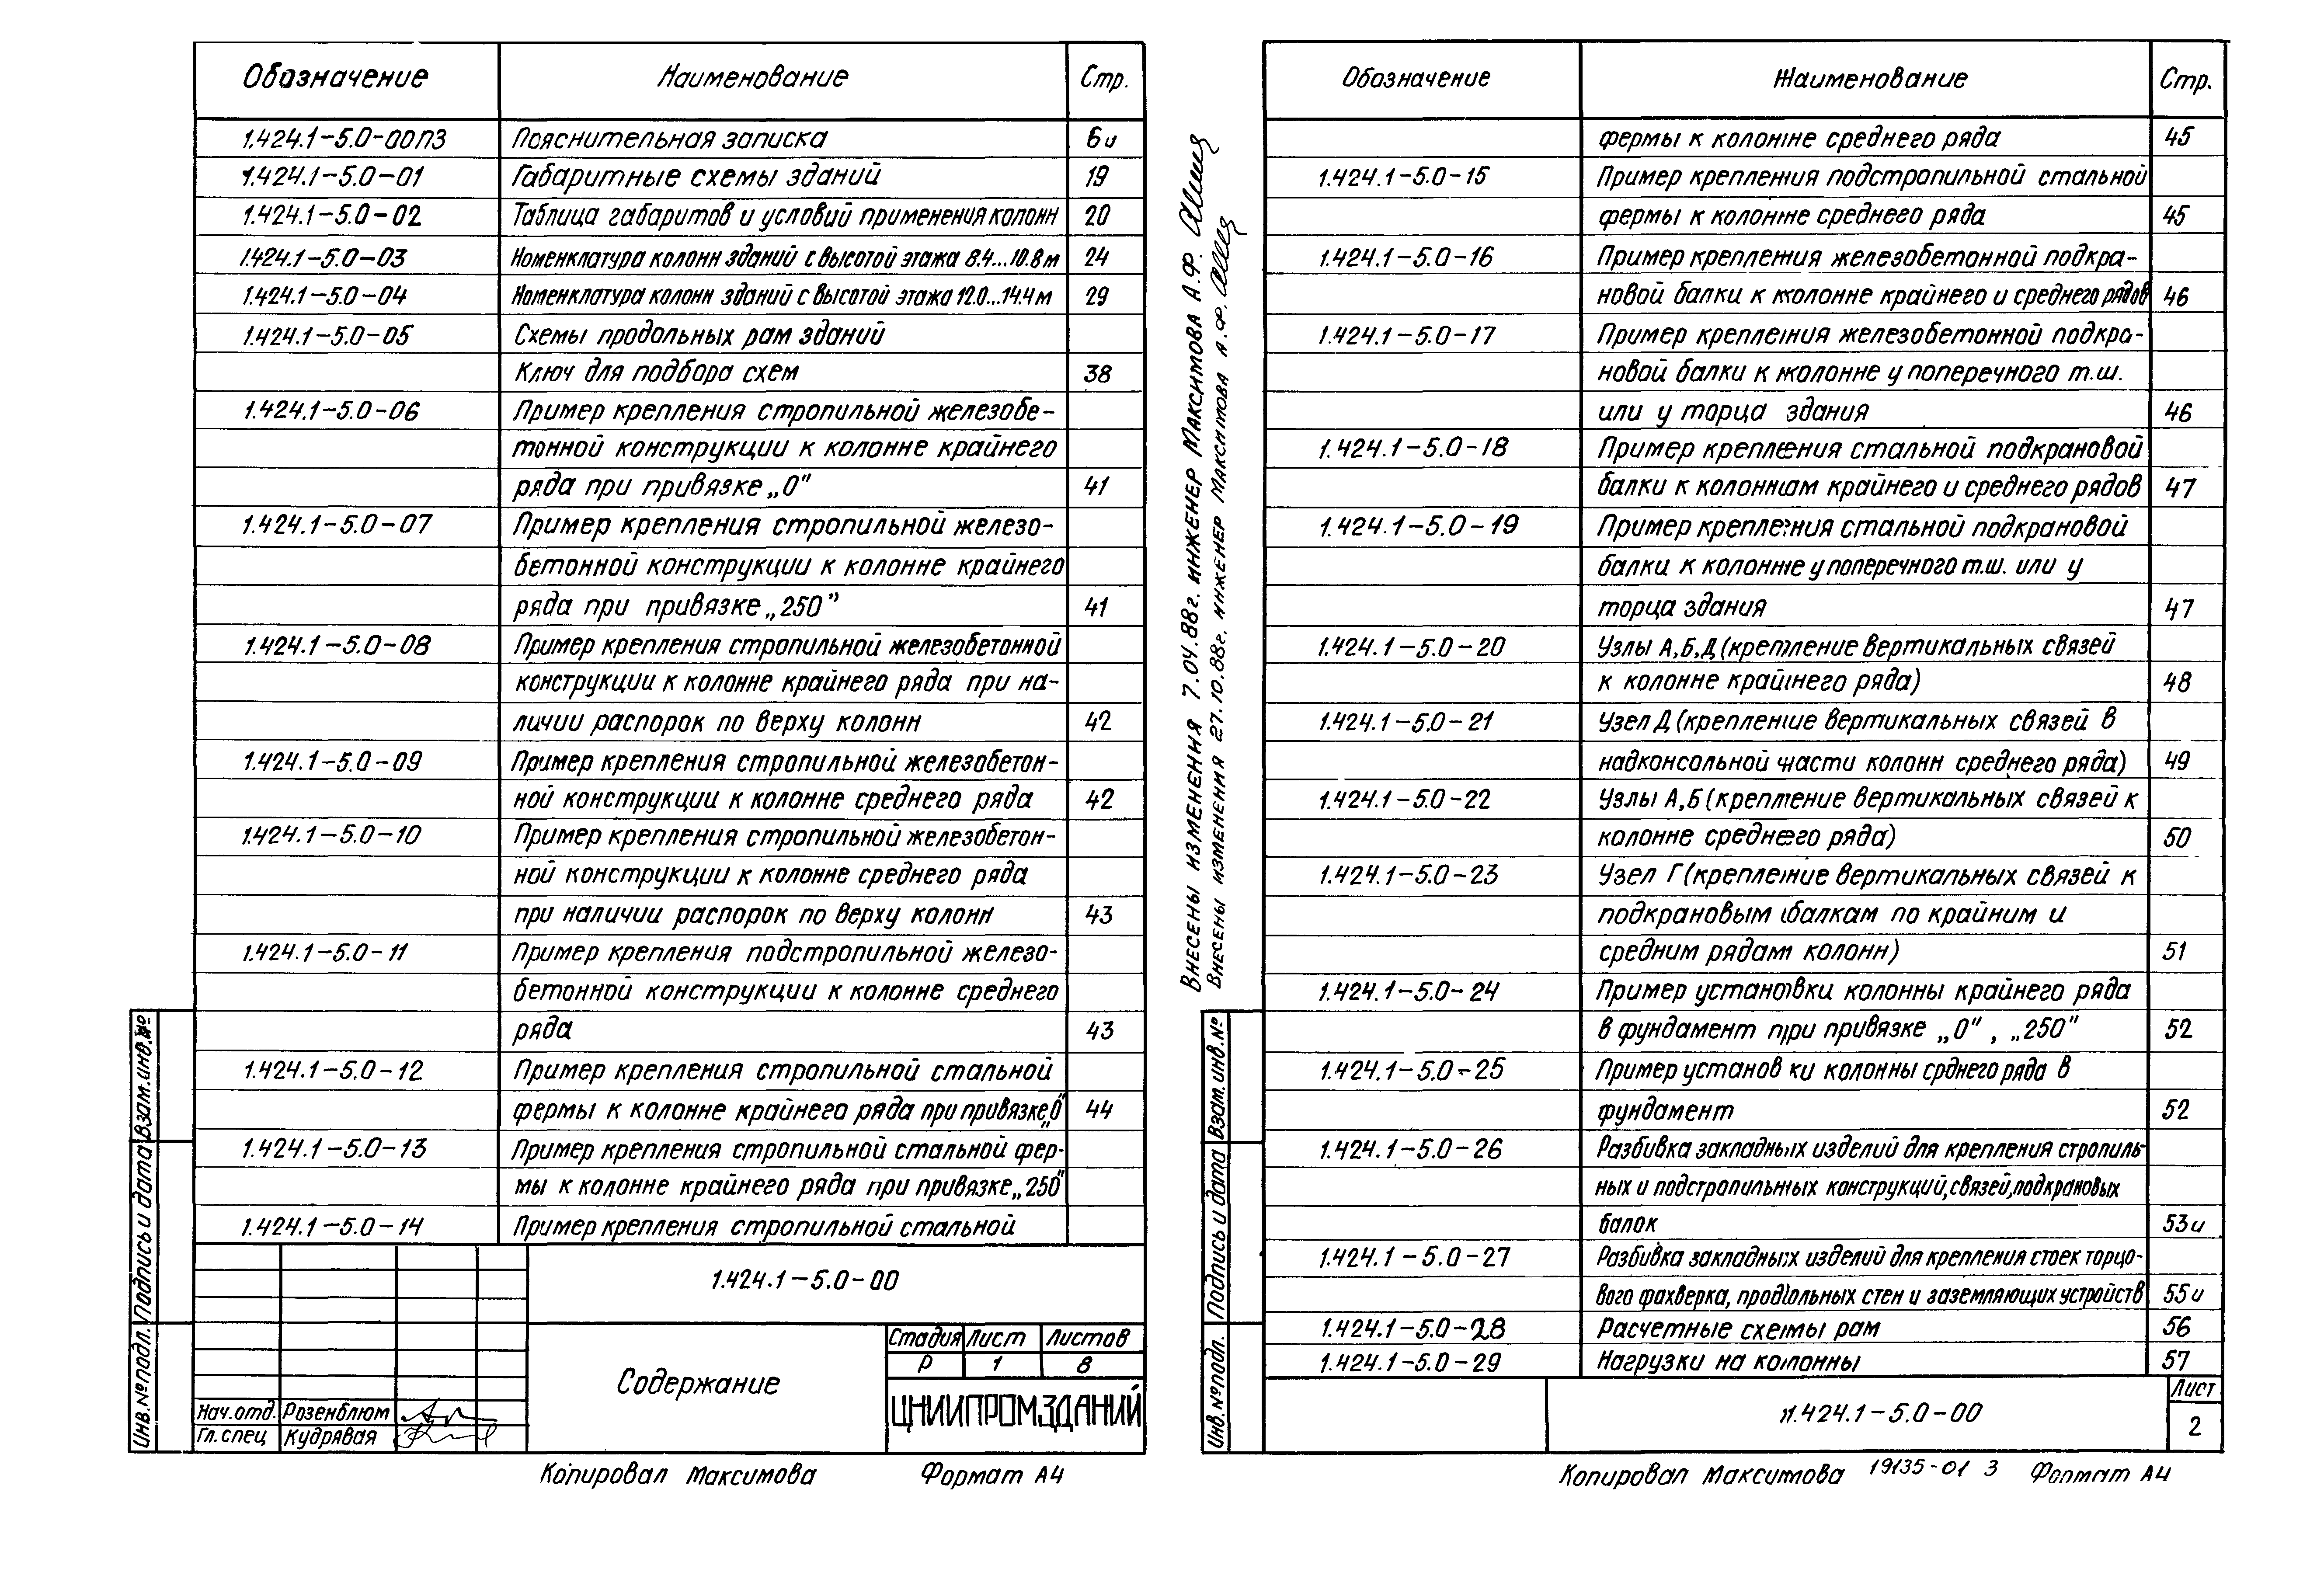 Обозначение Наименование Стр.
1.424.1-5.0-00ПЗ Пояснительная записка 6и
1.424.1-5.0-01 Габаритные схемы зданий 19
1.424.1-5.0-02 Таблица габаритов и условий применения колонн 20
1.424.1-5.0-03 Номенклатура колонн зданий с высотой этажа 8.4...10.8 м 24
1.424.1-5.0-04 Номенклатура колонн зданий с высотой этажа 12.0...14.4 м 29
1.424.1-5.0-05 Схемы продольных рам зданий
Ключ для подбора схем 38
1.424.1-5.0-06 Пример крепления стропильной железобе-
тонной конструкции к колонне крайнего
ряда при привязке „0" 41
1.424.1-5.0-07 Пример крепления стропильной железо-
бетонной конструкции к колонне крайнего
ряда при привязке „250" 41
1.424.1-5.0-08 Пример крепления стропильной железобетонной
конструкции к колонне крайнего ряда при на-
личии распорок по верху колонн 42
1.424.1-5.0-09 Пример крепления стропильной железобетон-
ной конструкции к колонне среднего ряда 42
1.424.1-5.0-10 Пример крепления стропильной железобетон-
ной конструкции к колонне среднего ряда
при наличии распорок по верху колонн 43
1.424.1-5.0-11 Пример крепления подстропильной железо-
бетонной конструкции к колонне среднего
ряда 43
1.424.1-5.0-12 Пример крепления стропильной стальной
фермы к колонне крайнего ряда при привязке „0" 44
1.424.1-5.0-13 Пример крепления стропильной стальной фер-
мы к колонне крайнего ряда при привязке „250"
1.424.1-5.0-14 Пример крепления стропильной стальной
1.424.1-5.0-00
Содержание
Стадия Лист Листов
Р 1 8
ЦНИИПРОМЗДАНИЙ
Нач.отд. Розенблюм
Гл.спец Кудрявая
Инв.№подл. Подпись и дата Взам.инв.№
Копировал Максимова Формат А4
Внесены изменения 7.04.88г. инженер Максимова А.Ф.
Внесены изменения 27.10.88г. инженер Максимова А.Ф.
Обозначение Наименование Стр.
фермы к колонне среднего ряда 45
1.424.1-5.0-15 Пример крепления подстропильной стальной
фермы к колонне среднего ряда 45
1.424.1-5.0-16 Пример крепления железобетонной подкра-
новой балки к колонне крайнего и среднего рядов 46
1.424.1-5.0-17 Пример крепления железобетонной подкра-
новой балки к колонне у поперечного т.ш.
или у торца здания 46
1.424.1-5.0-18 Пример крепления стальной подкрановой
балки к колоннам крайнего и среднего рядов 47
1.424.1-5.0-19 Пример крепления стальной подкрановой
балки к колонне у поперечного т.ш. или у
торца здания 47
1.424.1-5.0-20 Узлы А,Б,Д (крепление вертикальных связей
к колонне крайнего ряда) 48
1.424.1-5.0-21 Узел Д (крепление вертикальных связей в
надконсольной части колонн среднего ряда) 49
1.424.1-5.0-22 Узлы А,Б (крепление вертикальных связей к
колонне среднего ряда) 50
1.424.1-5.0-23 Узел Г (крепление вертикальных связей к
подкрановым балкам по крайним и
средним рядам колонн) 51
1.424.1-5.0-24 Пример установки колонны крайнего ряда
в фундамент при привязке „0", „250" 52
1.424.1-5.0-25 Пример установ ки колонны срднего ряда в
фундамент 52
1.424.1-5.0-26 Разбивка закладных изделий для крепления стропиль-
ных и подстропильных конструкций, связей, подкрановых
балок 53и
1.424.1-5.0-27 Разбивка закладных изделий для крепления стоек торцо-
вого фахверка, продольных стен и заземляющих устройств 55и
1.424.1-5.0-28 Расчетные схемы рам 56
1.424.1-5.0-29 Нагрузки на колонны 57
1.424.1-5.0-00
Лист
2
Инв.№подл. Подпись и дата Взам.инв.№
Копировал Максимова 19135-01 3 Формат А4